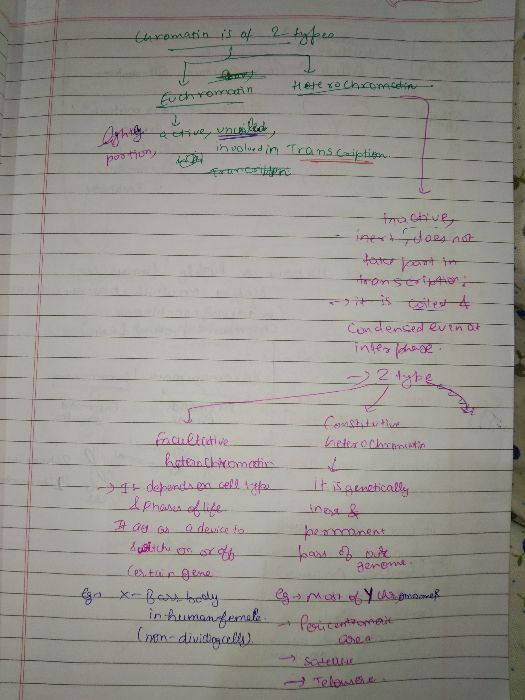 Chromatin is of 2 types
Euchromatin
Heterochromatin
Lightly active, uncoiled,
portion, involved in Transcription
transcription
inactive,
inert, does not
take part in
transcription.
→ it is coiled &
condensed even at
interphase.
→ 2 type
Facultative
heterochromatin
→ It depends on cell type
& phases of life
It act as a device to
switch on or off
certain gene
Eg→ X-Barr body
in human female
(non-dividing cells).
Constitutive
heterochromatin
It is genetically
inert &
permanent
part of our
genome.
Eg → Most of Y chromosomes
→ Pericentromeric
area
→ Satellite
→ Telomere.